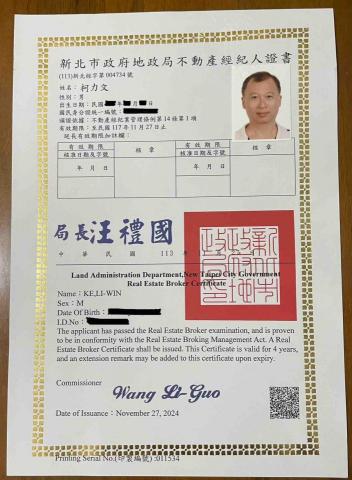 新北市政府地政局不動產經紀人證書
(113)新北經字第004734號
姓名：柯力文
性別：男
出生日期：民國 年 月 日
國民身分證統一編號：
備證依據：不動產經紀業管理條例第14條第1項
有效期限：至民國117年11月27日止
延長有效期限如註欄：
有效期限 核章 有效期限 核章
核准日期及字號 核准日期及字號
年 月 日 年 月 日
局長汪禮國
中華民國 113 年
Land Administration Department,New Taipei City Government
Real Estate Broker Certificate
Name：KE,LI-WIN
Sex：M
Date Of Birth：
I.D.No：
The applicant has passed the Real Estate Broker examination, and is proven
to be in conformity with the Real Estate Broking Management Act. A Real
Estate Broker Certificate shall be issued. This Certificate is valid for 4 years,
and an extension remark may be added to this certificate upon expiry.
Commissioner
Wang Li-Guo
Date of Issuance：November 27, 2024
Printing Serial No.(印製編號) :011534